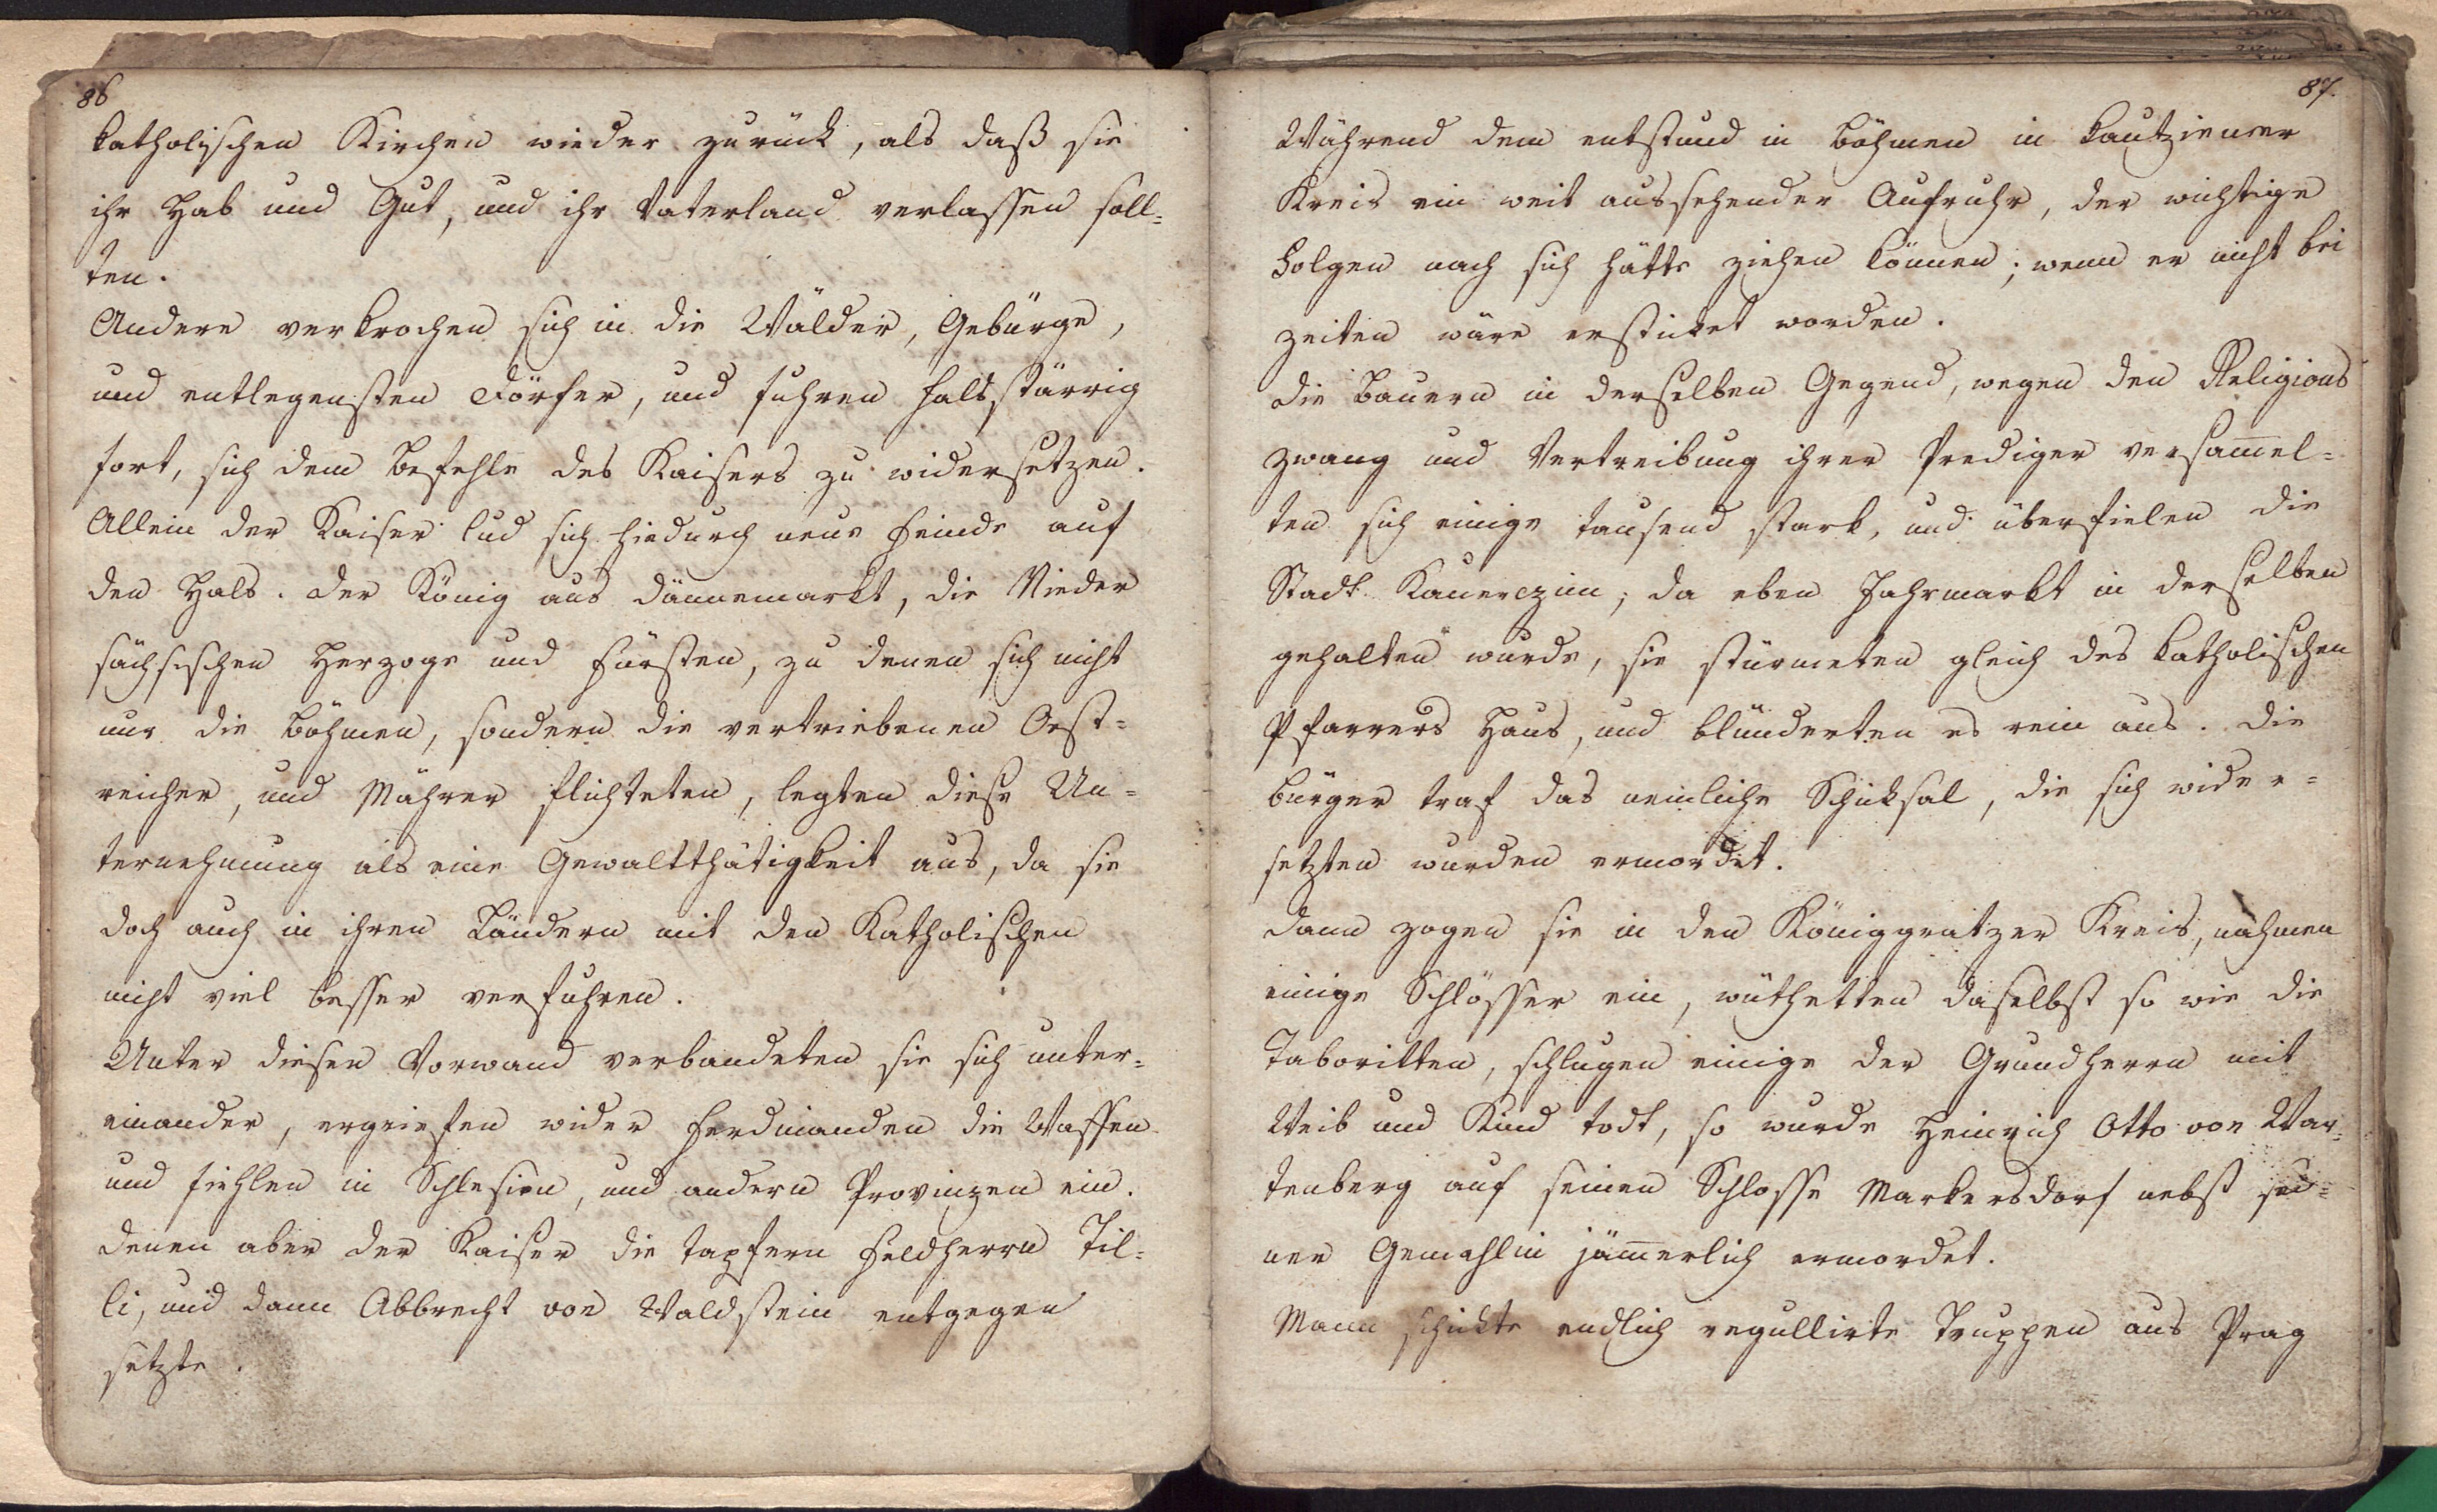 86
katholischen Kirchen wieder zurück, als daß sie
ihr Hab und Gut, und ihr Vaterland verlassen soll=
ten.
Andere verkrochen sich in die Wälder, Gebürge,
und entlegensten Dörfer, und fuhren halsstärrig
fort, sich dem Befehle des Kaisers zu widersetzen.
Allein der Kaiser lud sich hiedurch neue Feinde auf
den Hals. der König aus Dännemarkt, die Nieder
sächsischen Herzoge und Fürsten, zu denen sich nicht
nur die Böhmen, sondern die vertriebenen Oest=
reicher, und Mährer flichteten, legten diese Un=
ternehmung als eine Gewaltthätigkeit aus, da sie
doch auch in ihren Ländern mit den Katholischen
nicht viel besser verfuhren.
Unter diesen Vorwand verbandeten sie sich unter=
einander, ergriefen wider Ferdinanden die Waffen
und fiehlen in Schlesien, und andern Provinzen ein.
denen aber der Kaiser die tapfern Feldherrn Til=
li, und dann Abbrecht von Waldstein entgegen
setzte.
87.
Während dem entstund in Böhmen in Kautziemer
Kreis ein weit aussehender Aufruhr, der wichtige
Folgen nach sich hätte ziehen können; wenn er nicht bei
zeiten wäre ersticket worden.
die Bauern in derselben Gegend, wegen den Religions
zwang und Vertreibung ihrer Prediger versam̄el=
ten sich einige tausend stark, und überfielen die
Stadt Kauerczim; da eben Jahrmarkt in derselben
gehalten wurde, sie stürmeten gleich des katholischen
Pfarrers Haus, und blünderten es rein aus. die
Bürger traf das nemliche Schicksal, die sich wider=
setzten wurden ermordet.
dann zogen sie in den Königgratzer Kreis, nahmen
einige Schlösser ein, wüthetten daselbst so wie die
Taboritten, schlugen einige der Grundherrn mit
Weib und Kind todt, so wurde Heinrich Otto von War=
tenberg auf seinen Schlosse Markersdorf nebst sei=
ner Gemahlin jäm̄erlich ermordet.
Mann schickte endlich regullirte Truppen aus Prag